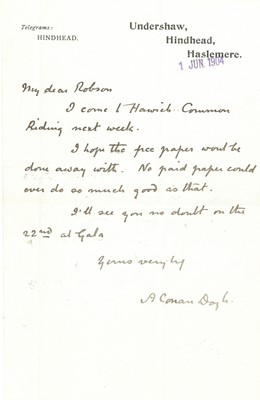 Telegrams:
HINDHEAD.
Undershaw,
Hindhead,
Haslemere.
1 JUN. 1904
My dear Robson
I come to Hawick Common
Riding next week.
I hope the free paper wont be
done away with. No paid paper could
ever do so much good as that.
I'll see you no doubt on the
22nd at Gala
Yours very truly
A Conan Doyle